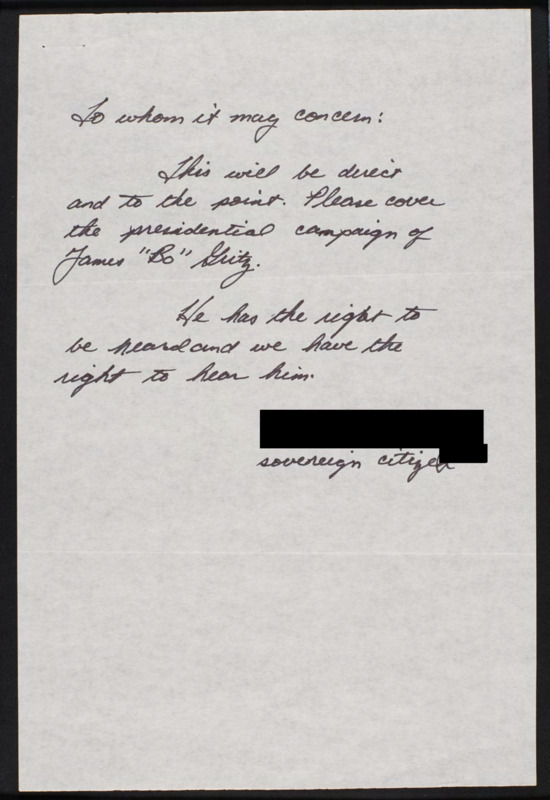 To whom it may concern:
This will be direct
and to the point. Please cover
the presidential campaign of
James "Bo" Gritz.
He has the right to
be heard and we have the
right to hear him.
sovereign citizen